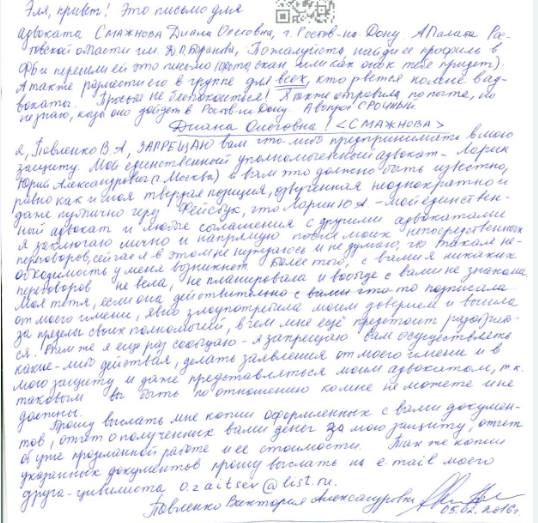 Эля, привет! Это письмо для
адвоката Смажнова Диана Олеговна, г. Ростов-на-Дону АПалата Рос-
товской области им. Д.П. Баранова, Пожалуйста, найди ее профиль в
Фб и перешли ей это письмо
А также размести его в группе для всех, кто рвется ко мне в ад-
вокаты. Просьба не беспокоиться! Я также отправила по почте, но
не знаю, когда оно дойдет в Ростов-на-Дону А вопрос СРОЧНЫЙ
Диана Олеговна! <СМАЖНОВА>
Я, Павленко В.А, ЗАПРЕЩАЮ вам что-либо предпринимать в мою
защиту. Мой единственный уполномоченный адвокат - Ларин
Юрий Александрович (г. Москва) и вам это должно быть известно,
равно как и моя твердая позиция, озвученная неоднократно и
даже публично через Фейсбук, что Ларин Ю.А - мой единствен-
ный адвокат и любые соглашения с другими адвокатами
я заключаю лично и напрямую после моих непосредственных
переговоров, сейчас я в этом не нуждаюсь и не думаю, что такая не-
обходимость у меня возникнет. Более того, с вами я никаких
переговоров не вела, не планировала и вообще с вами не знакома
Моя тетя, если она действительно с вами что-то подписала
от моего имени, явно злоупотребила моим доверием и вышла
за пределы своих полномочий, в чем мне ещё предстоит
ся. Вам же я ещё раз сообщаю - я запрещаю вам осуществлять
какие-либо действия, делать заявления от моего имени и в
мою защиту и даже представляться моим адвокатом, т.к.
таковым вы быть по отношению ко мне не можете и не
должны.
Прошу выслать мне копии оформленных с вами докумен-
тов, отчет о полученных вами денег за мою защиту, отчет
об уже проделанной работе и ее стоимости. Также копии
указанных документов прошу выслать на e-mail моего
друга-цивилиста o.zaitsev@list.ru.
Павленко Виктория Александровна
05.02.2016г.